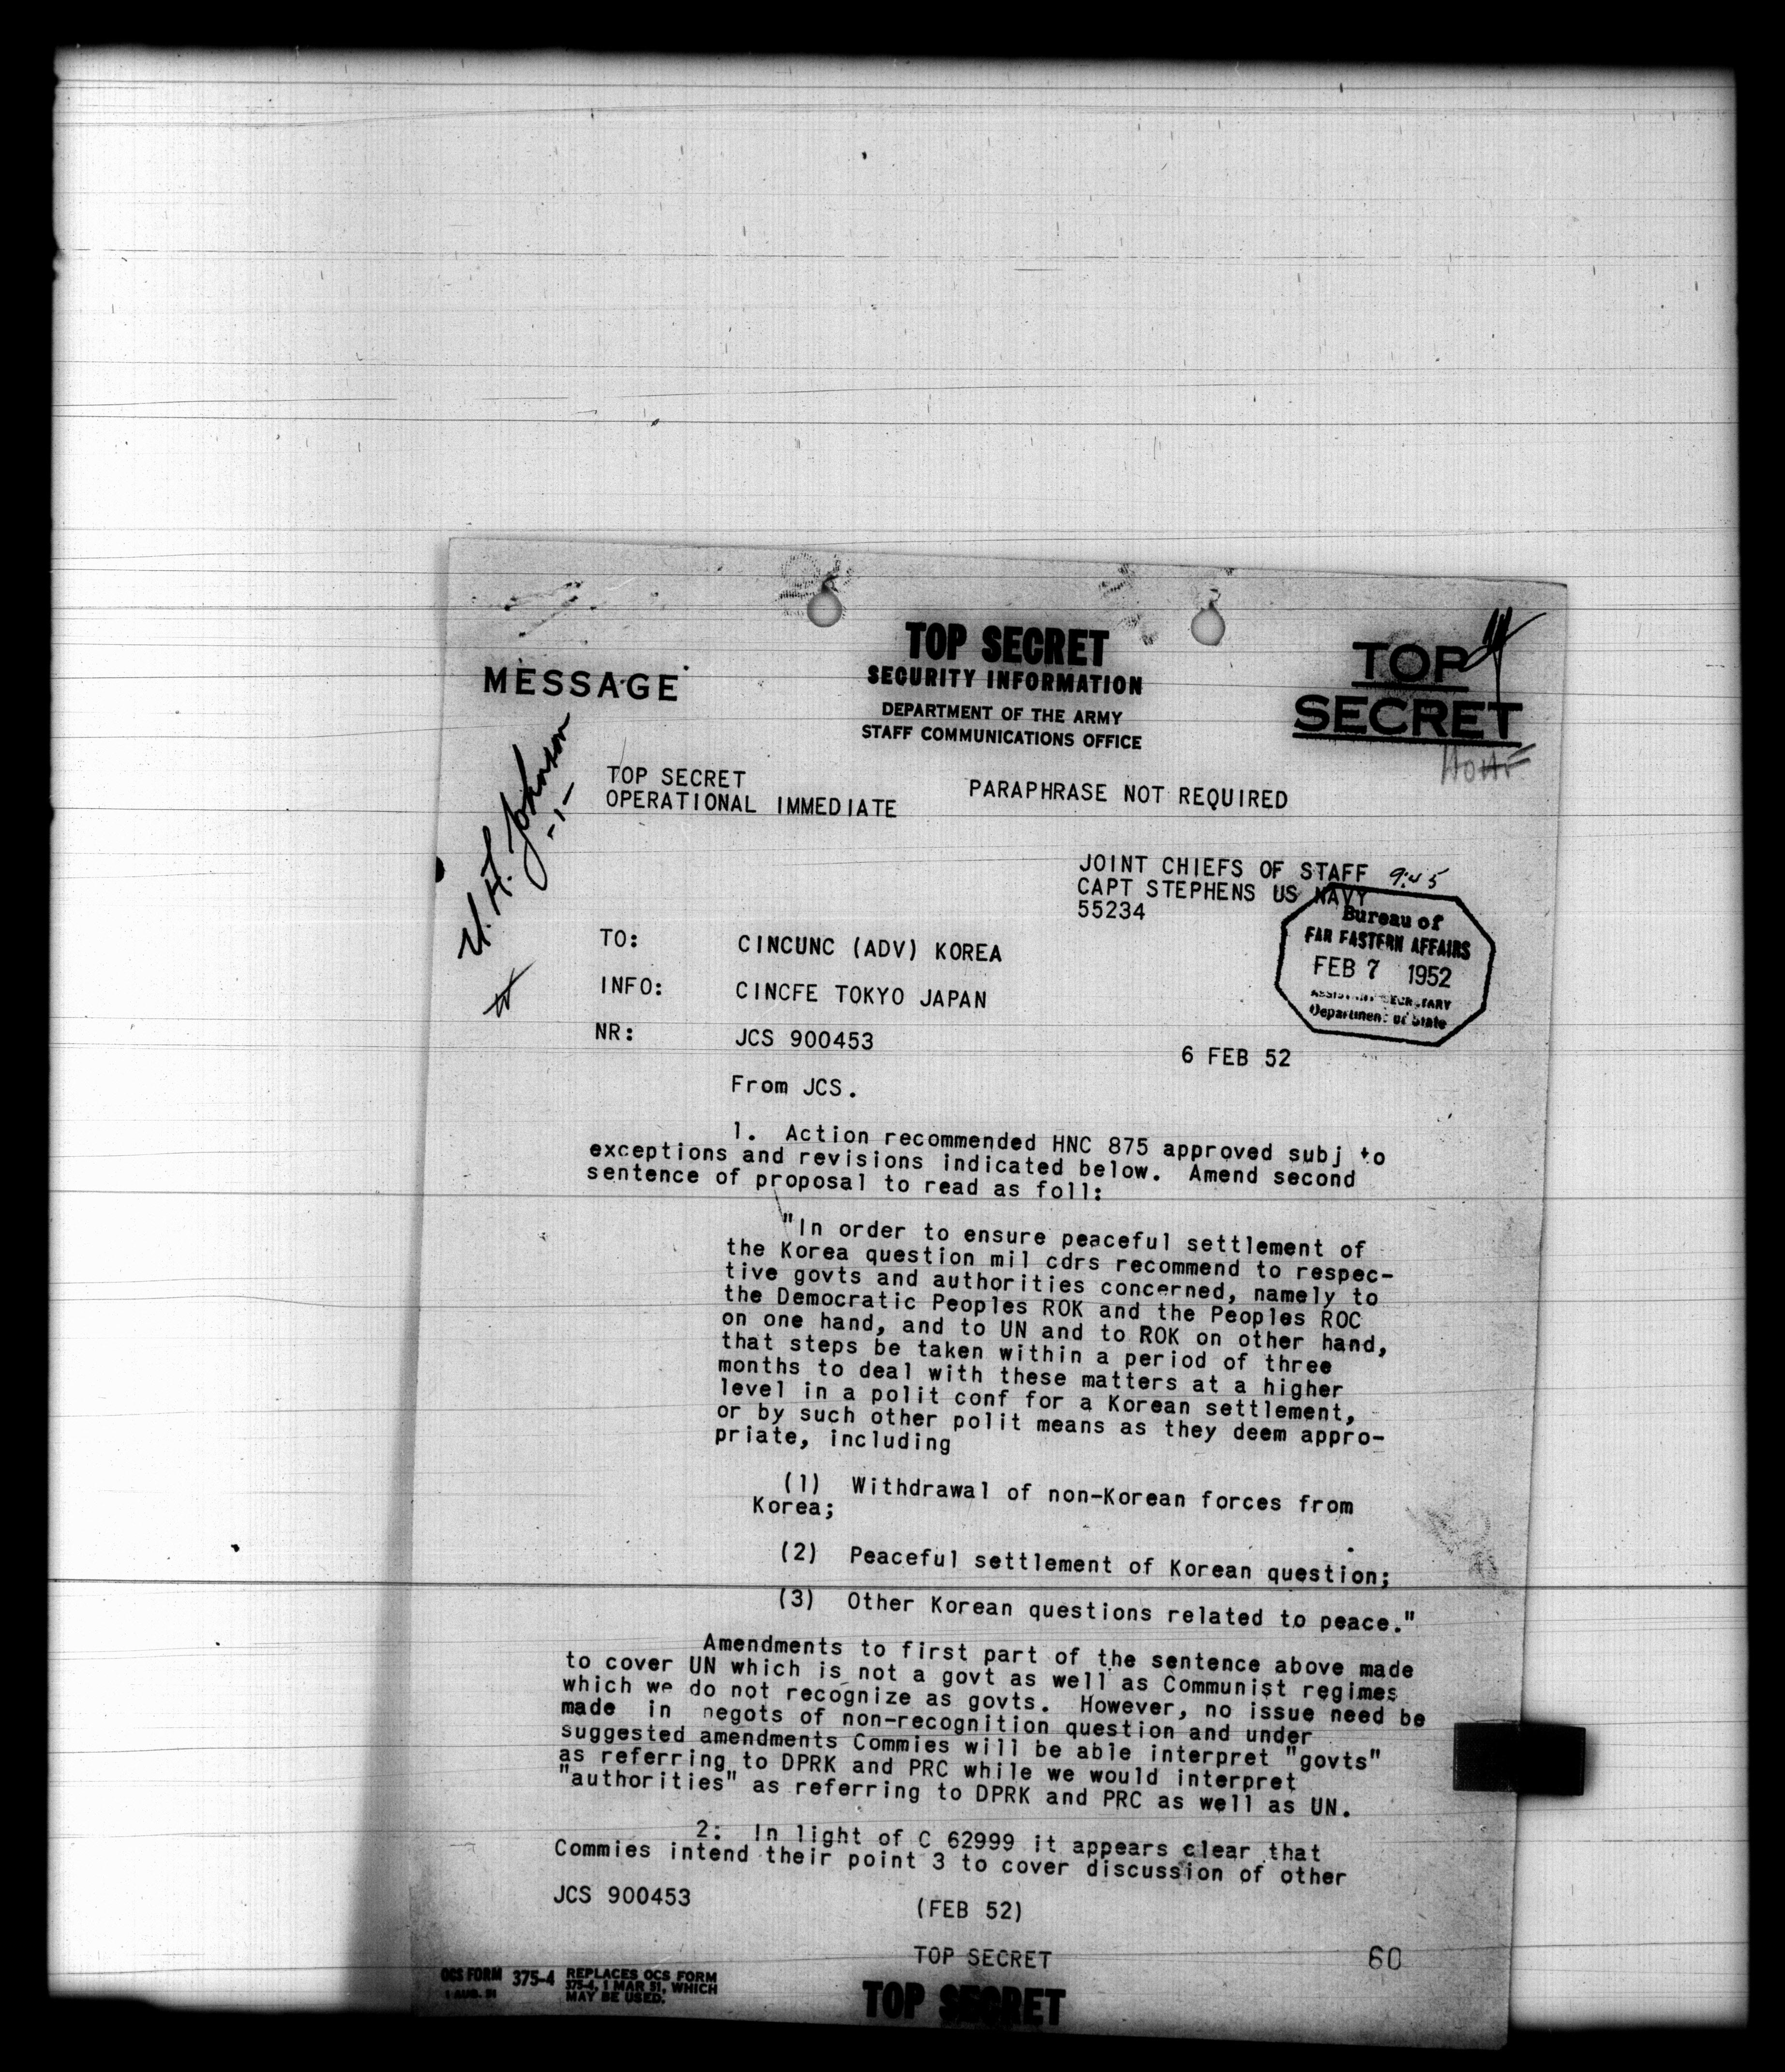 TOP SECRET
SECURITY INFORMATION
MESSAGE
TOP
SECRET
DEPARTMENT OF THE ARMY
STAFF COMMUNICATIONS OFFICE
U. A. Johnson
-1-
TOP SECRET
OPERATIONAL IMMEDIATE
PARAPHRASE NOT REQUIRED
JOINT CHIEFS OF STAFF 9:45
CAPT STEPHENS US NAVY
55234
Bureau of
FAR EASTERN AFFAIRS
FEB 7 1952
ASSISTANT SECRETARY
Department of State
TO: CINCUNC (ADV) KOREA
INFO: CINCFE TOKYO JAPAN
NR: JCS 900453
6 FEB 52
From JCS.
1. Action recommended HNC 875 approved subj to
exceptions and revisions indicated below. Amend second
sentence of proposal to read as foll:
"In order to ensure peaceful settlement of
the Korea question mil cdrs recommend to respec-
tive govts and authorities concerned, namely to
the Democratic Peoples ROK and the Peoples ROC
on one hand, and to UN and to ROK on other hand,
that steps be taken within a period of three
months to deal with these matters at a higher
level in a polit conf for a Korean settlement,
or by such other polit means as they deem appro-
priate, including
(1) Withdrawal of non-Korean forces from
Korea;
(2) Peaceful settlement of Korean question;
(3) Other Korean questions related to peace."
Amendments to first part of the sentence above made
to cover UN which is not a govt as well as Communist regimes
which we do not recognize as govts. However, no issue need be
made in negots of non-recognition question and under
suggested amendments Commies will be able interpret "govts"
as referring to DPRK and PRC while we would interpret
"authorities" as referring to DPRK and PRC as well as UN.
2: In light of C 62999 it appears clear that
Commies intend their point 3 to cover discussion of other
JCS 900453
(FEB 52)
TOP SECRET
60
OCS FORM 375-4 REPLACES OCS FORM
1 AUG. 51 375-4, 1 MAR 51, WHICH
MAY BE USED.
TOP SECRET